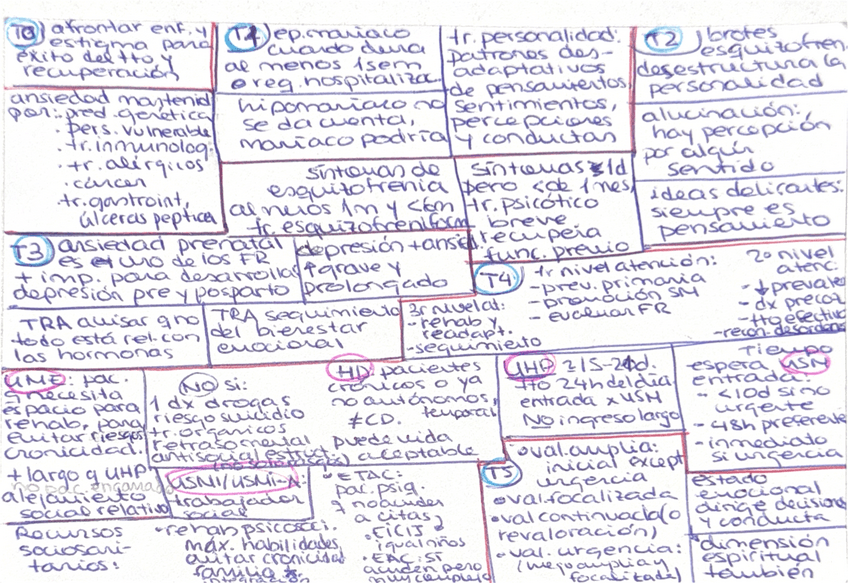 T0 afrontar enf. y
estigma para
éxito del tto y
recuperación
ansiedad mantenid
por: pred. genética
· pers. vulnerable
· tr. inmunolog.
· tr. alérgicos
· cáncer
· tr. gastroint,
úlceras peptica
T1 ep. maníaco
cuando dura
al menos 1 sem
o req. hospitaliza
hipomaníaco no
se da cuenta,
maníaco podría
tr. personalidad:
patrones des-
adaptativos
de pensamientos,
sentimientos,
percepciones
y conductas
T2 brotes
esquizofren.
desestructura la
personalidad
alucinación:
hay percepción
por algún
sentido
ideas delirantes:
siempre es
pensamiento
síntomas de
esquizofrenia
al menos 1m y <6m
tr. esquizofreniform
síntomas 1d
pero < de 1 mes,
tr. psicótico
breve
recupera
func. previo
T3 ansiedad prenatal
es uno de los FR
+ imp. para desarrollar
depresión pre y posparto
depresión + ansied
+ grave y
prolongado
TRA avisar q no
todo está rel. con
las hormonas
TRA seguimiento
del bienestar
emocional
T4 1r nivel atención:
- prev. primaria
- promoción SM
- evaluar FR
2º nivel
atenc.
- ↓ prevale
- dx precoz
- tto efectivo
3r nivel at:
- rehab y
readapt.
- seguimiento
UME: pac.
necesita
espacio para
rehab, para
evitar riesgos
cronicidad.
+ largo q UHP
alejamiento
social relativo
NO si:
1 dx drogas
riesgo suicidio
tr. orgánicos
retraso mental
HD pacientes
crónicos o ya
no autónomos,
≠ CD. temporal
puede vida
aceptable
UHP 15-21d.
tto 24h del día
entrada x USM
No ingreso largo
Tiempo
espera USM
entrada:
- <10d si no
urgente
- 48h preferente
- inmediato
si urgencia
USMI/USMI-A:
trabajador
social
Recursos
sociosani-
tarios:
· rehab psicosoci.
máx. habilidades,
evitar cronicidad
familia
· ETAC:
pac. psiq.
no acuden
a citas
· EICIJ
igual niños
· EAC: sí
acuden pero
T5 · val. amplia:
inicial except
urgencia
· val. focalizada
· val continuada (o
revaloración)
· val. urgencia:
(luego amplia y
focalizada)
estado
emocional
dirige decisiones
y conducta
dimensión
espiritual
también